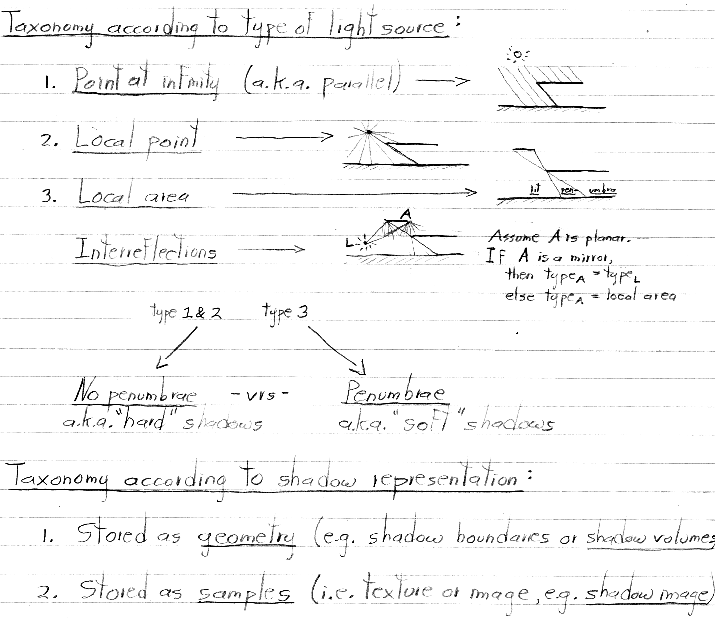 Taxonomy according to type of light source:
1. Point at infinity (a.k.a. parallel)
2. Local point
3. Local area
lit pen- umbra
Interreflections
L A
Assume A is planar.
If A is a mirror,
then typeA = typeL
else typeA = local area
type 1 & 2 type 3
No penumbrae - vrs - Penumbrae
a.k.a. "hard" shadows a.k.a. "soft" shadows
Taxonomy according to shadow representation:
1. Stored as geometry (e.g. shadow boundaries or shadow volumes
2. Stored as samples (i.e. texture or image, e.g. shadow image)